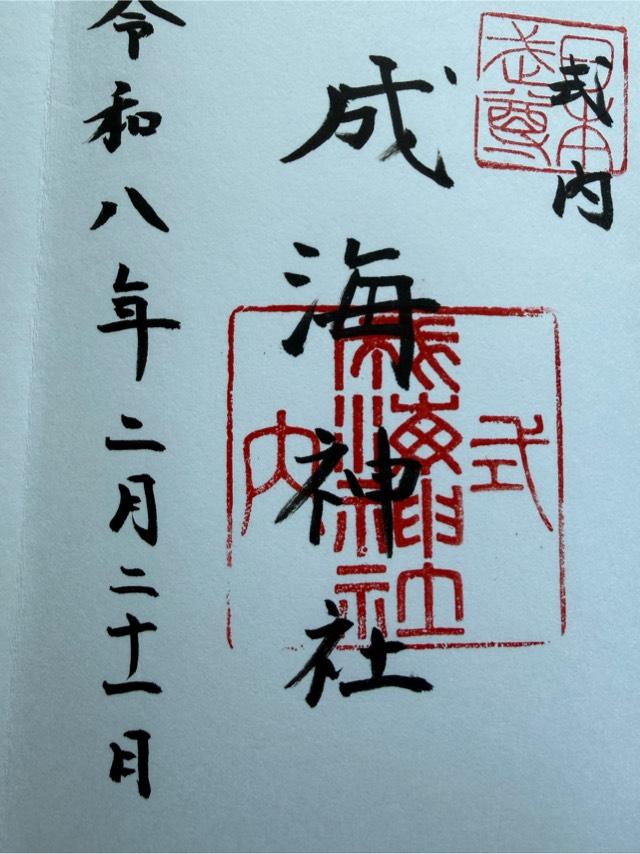 日本武尊
式内
成海神社
式内
成海神社
令和八年二月二十一日